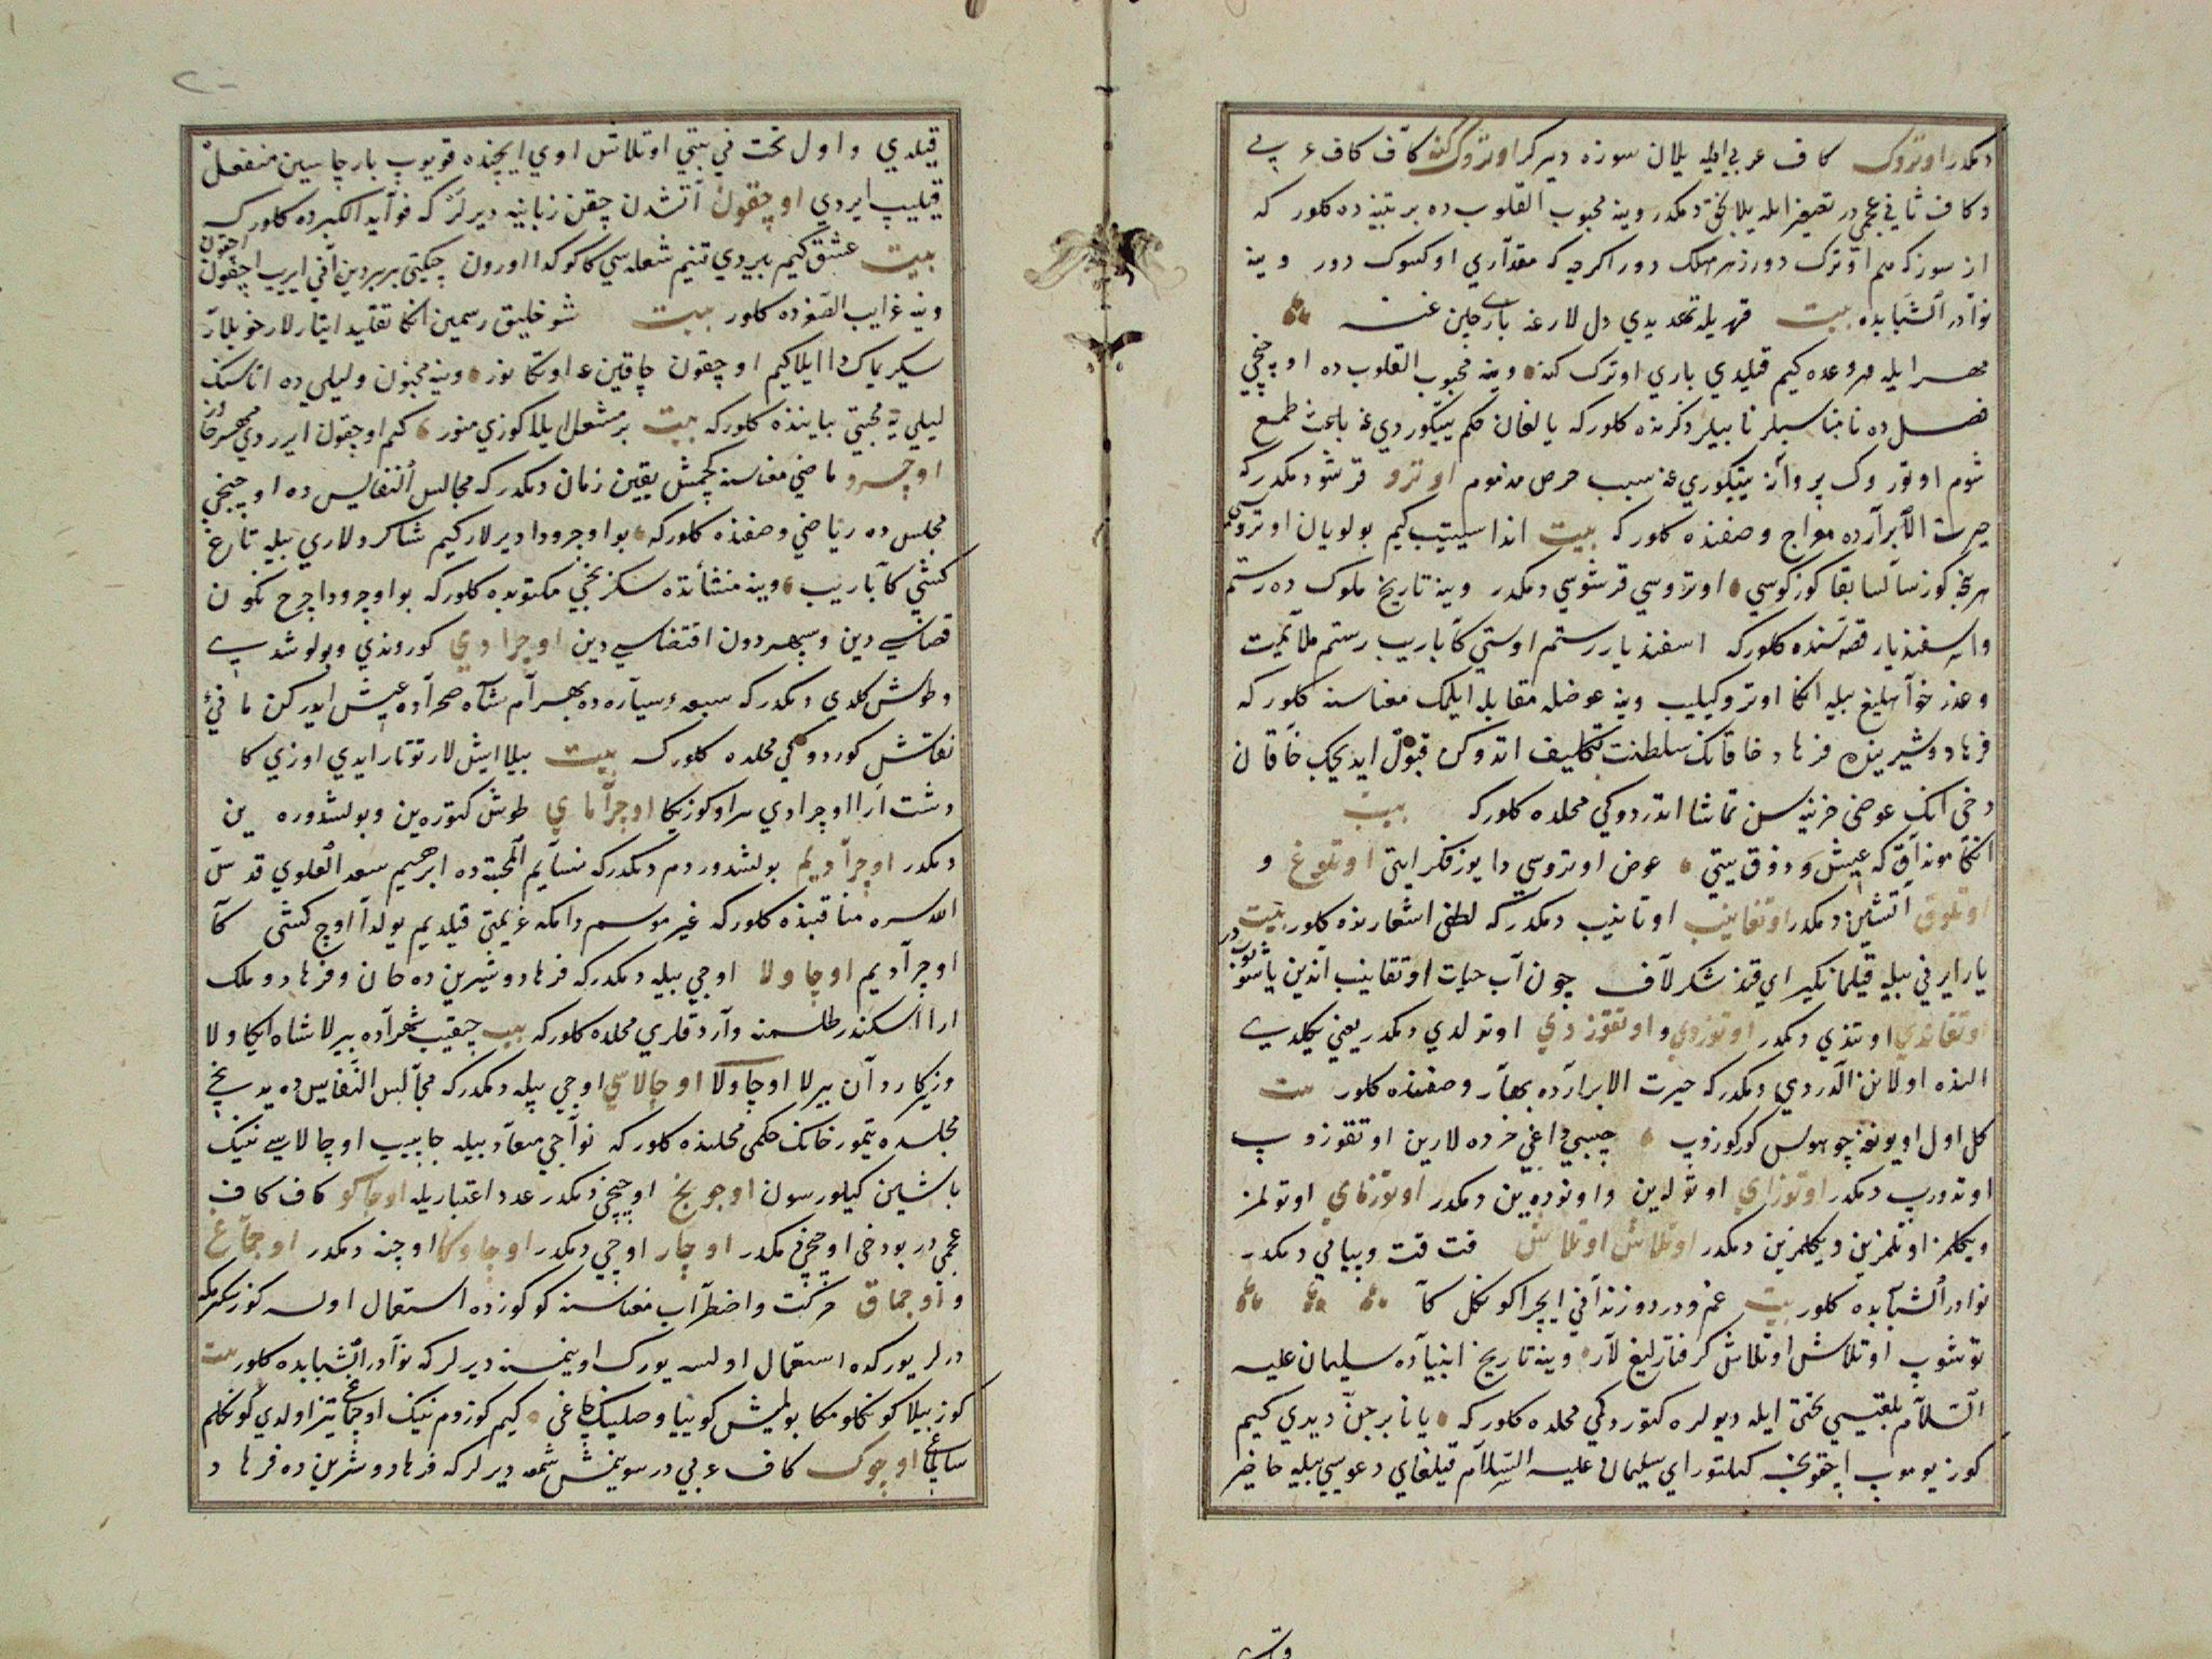 دمكدر اوتروك كاف عربي ايله يلان سوزه ديرلر اوتروككنه كاف كاف ع بي
وكاف ثاني عجمي در تصغير ايله يلانجق دمكدر وينه محبوب القلوب ده بر بتينده كلور كه
از سوز كه هم اوترك دور زهر مهلك دور اكرچه كه مقداري اوكسوك دور وينه
نوادر الشبابده بيت قهريله تهديدي دل لارغه بارچين غنه
مهر ايله هر وعده كيم قيلدي باري اوترك كنه وينه محبوب القلوب ده اوچنجي
فصل ده نامناسبلر نايبلر ذكرنده كلور كه يالغان حكم ييتكوردي غه باعث طمع
شوم اوتروك پروانه ييتكوري غه سبب حرص مذموم اوترو قرشو دمكدر كه
حيرت الابرارده معراج وصفنده كلور كه بيت انداسيتيب كيم بولويان اوتروسي
هر نجه كوز سالسا بقا كوزكوسي اوتروسي قرشوسي دمكدر وينه تاريخ ملوك ده رستم
واسفنديار قصه سنده كلور كه اسفنديار رستم اوستي كا باريب رستم ملايمت
وعذر خواهليغ بيله انكا اوترو كيليب وينه عوضله مقابله ايلمك معناسنه كلور كه
فرهاد وشيرينده فرهاد خاقانك سلطنت تكليف اتدوكن قبول ايديجك خاقان
دخي انك عوضي خزينه سن تماشا اتدردوكي محلده كلور كه بيت
انكا مونداق كه عيش و ذوق ييتي عوض اوتروسي دا يوز فكر ايتي اوتلوغ و
اوتلوق آتشين دمكدر اوتغانيب اوتانيب دمكدر كه لطفي اشعارنده كلور بيت
يار ايرني بيله قيلمانكيز اي قند شكر لاف چون آب حيات اوتقانيب آندين ياشونوب در
اوتقاندي اوتندي دمكدر اوتوزدي و اوتقوزدي اوتولدي دمكدر يعني يكلدي
النده اولانن الدردي دمكدر كه حيرت الابرارده بهار وصفنده كلور بيت
كل اول اويونغه چو هوس كوركوزوب جيبي داغي خرده لارين اوتقوزوب
اوتدورب دمكدر اوتوزاي اوتولين واوتوده ين دمكدر اوتوزماي اوتولمز
ويكلمز اوتلمزين ويكلمزين دمكدر اوتلاش اوتلاش قت قت وپياپي دمكدر
نوادر الشبابده كلور بيت غم و درد و زنداني ايچرا كونكل كا
توشوب اوتلاش اوتلاش كرفتارليغ لار وينه تاريخ انبياده سليمان عليه
السلام بلقيسي تختي ايله ديولره كتوردوكي محلده كلور كه يانا بر جن ديدي كيم
كوز يوموب اچقونجه كيلتوراي سليمان عليه السلام قيلغاي دعوسي بيله حاضر
قيلدي واول تخت ني يتي اوتلاش اوي ايچنده قويوب بارچاسين منفعل
قيليب ايردي اوچقون آتشدن چقن زبانيه ديرلر كه فوايد الكبرده كلور كه
بيت عشق كيم بيردي تنيم شعله سي كا كوكدا اورون چيكتي بر بردين آني ايريب اچقون اچقون
وينه غرايب الصغرده كلور بيت شوخليق رسمين انكا تقليد ايتارلار خوبلار
سيكريماك دا ايلاكيم اوچقون چاقين غه اوتكانوز وينه مجنون وليلي ده اناسنك
ليلي يه محبتي بياننده كلور كه بيت بر مشعل ايلا كوزي منور كيم اوچقون ايردي مهر خاور
اوچرو ماضي معناسنه كچمش يقين زمان دمكدر كه مجالس النفايس ده اوچنجي
مجلس ده رياضي وصفنده كلور كه بو اوچرودا ديرلار كيم شاكردلاري بيله تاغ
كشتي كا باريب وينه منشأتده سكزنجي مكتوبده كلور كه بو اوچرودا چرخ نكون
قضاسي دين وسپهر دون اقتضاسي دين اوچرادي كوروندي وبولوشدي
وطوش كلدي دمكدر كه سبعه سيارده بهرام شاه صحراده عيش ايدركن ماني
نقاش كوردوكي محلده كلور كه بيت بيلا ايش لار توتار ايدي اوزي كا
دشت ارا اوچرادي سراو كوزيكا اوچراماي طوش كتوره ين وبولشدوره ين
دمكدر اوچراديم بولشدوردم دمكدر كه نسايم المحبه ده ابرهيم سعد العلوي قدس
الله سره مناقبنده كلور كه غير موسم دا مكه عزيمتي قيلديم يولدا اوچ كشي كا
اوچراديم اوچاولا اوچي بيله دمكدر كه فرهاد وشيرين ده خان وفرهاد وملك
ارا اسكندر طلسمنه وارد قلري محلده كلور كه بيت چيقيب شهراده بيرلا شاه ايكاولا
وزيكارد آن بيرلا اوچاولا اوچالاسي اوچي بيله دمكدر كه مجالس النفايس ده يدنجي
مجلسده تيمور خانك حكمي محلنده كلور كه نواجي ميعاد بيله چاپيب اوچالاسي نينك
باشين كيلورسون اوچونج اوچنجي دمكدر عدد اعتباريله اوچاكو كاف كاف
عجمي در بو دخي اوچنجي دمكدر اوچار اوچي دمكدر اوچاوكا اوچنه دمكدر اوچماغ
و اوچماق حركت واضطراب معناسنه كوكوزده استعمال اولسه كوز سكرمك
درلر يوركده استعمال اولسه يورك اوينمسنه ديرلر كه نوادر الشبابده كلور بيت
كوز بيلا كونكلومكا بولميش كوييا وصلينك چاغي كيم كوزوم نينك اوچماغي تيز اولدي كونكلم
ساغي اوچوك كاف ع بي در سوينمش شمعه ديرلر كه فرهاد وشرين ده فرهاد